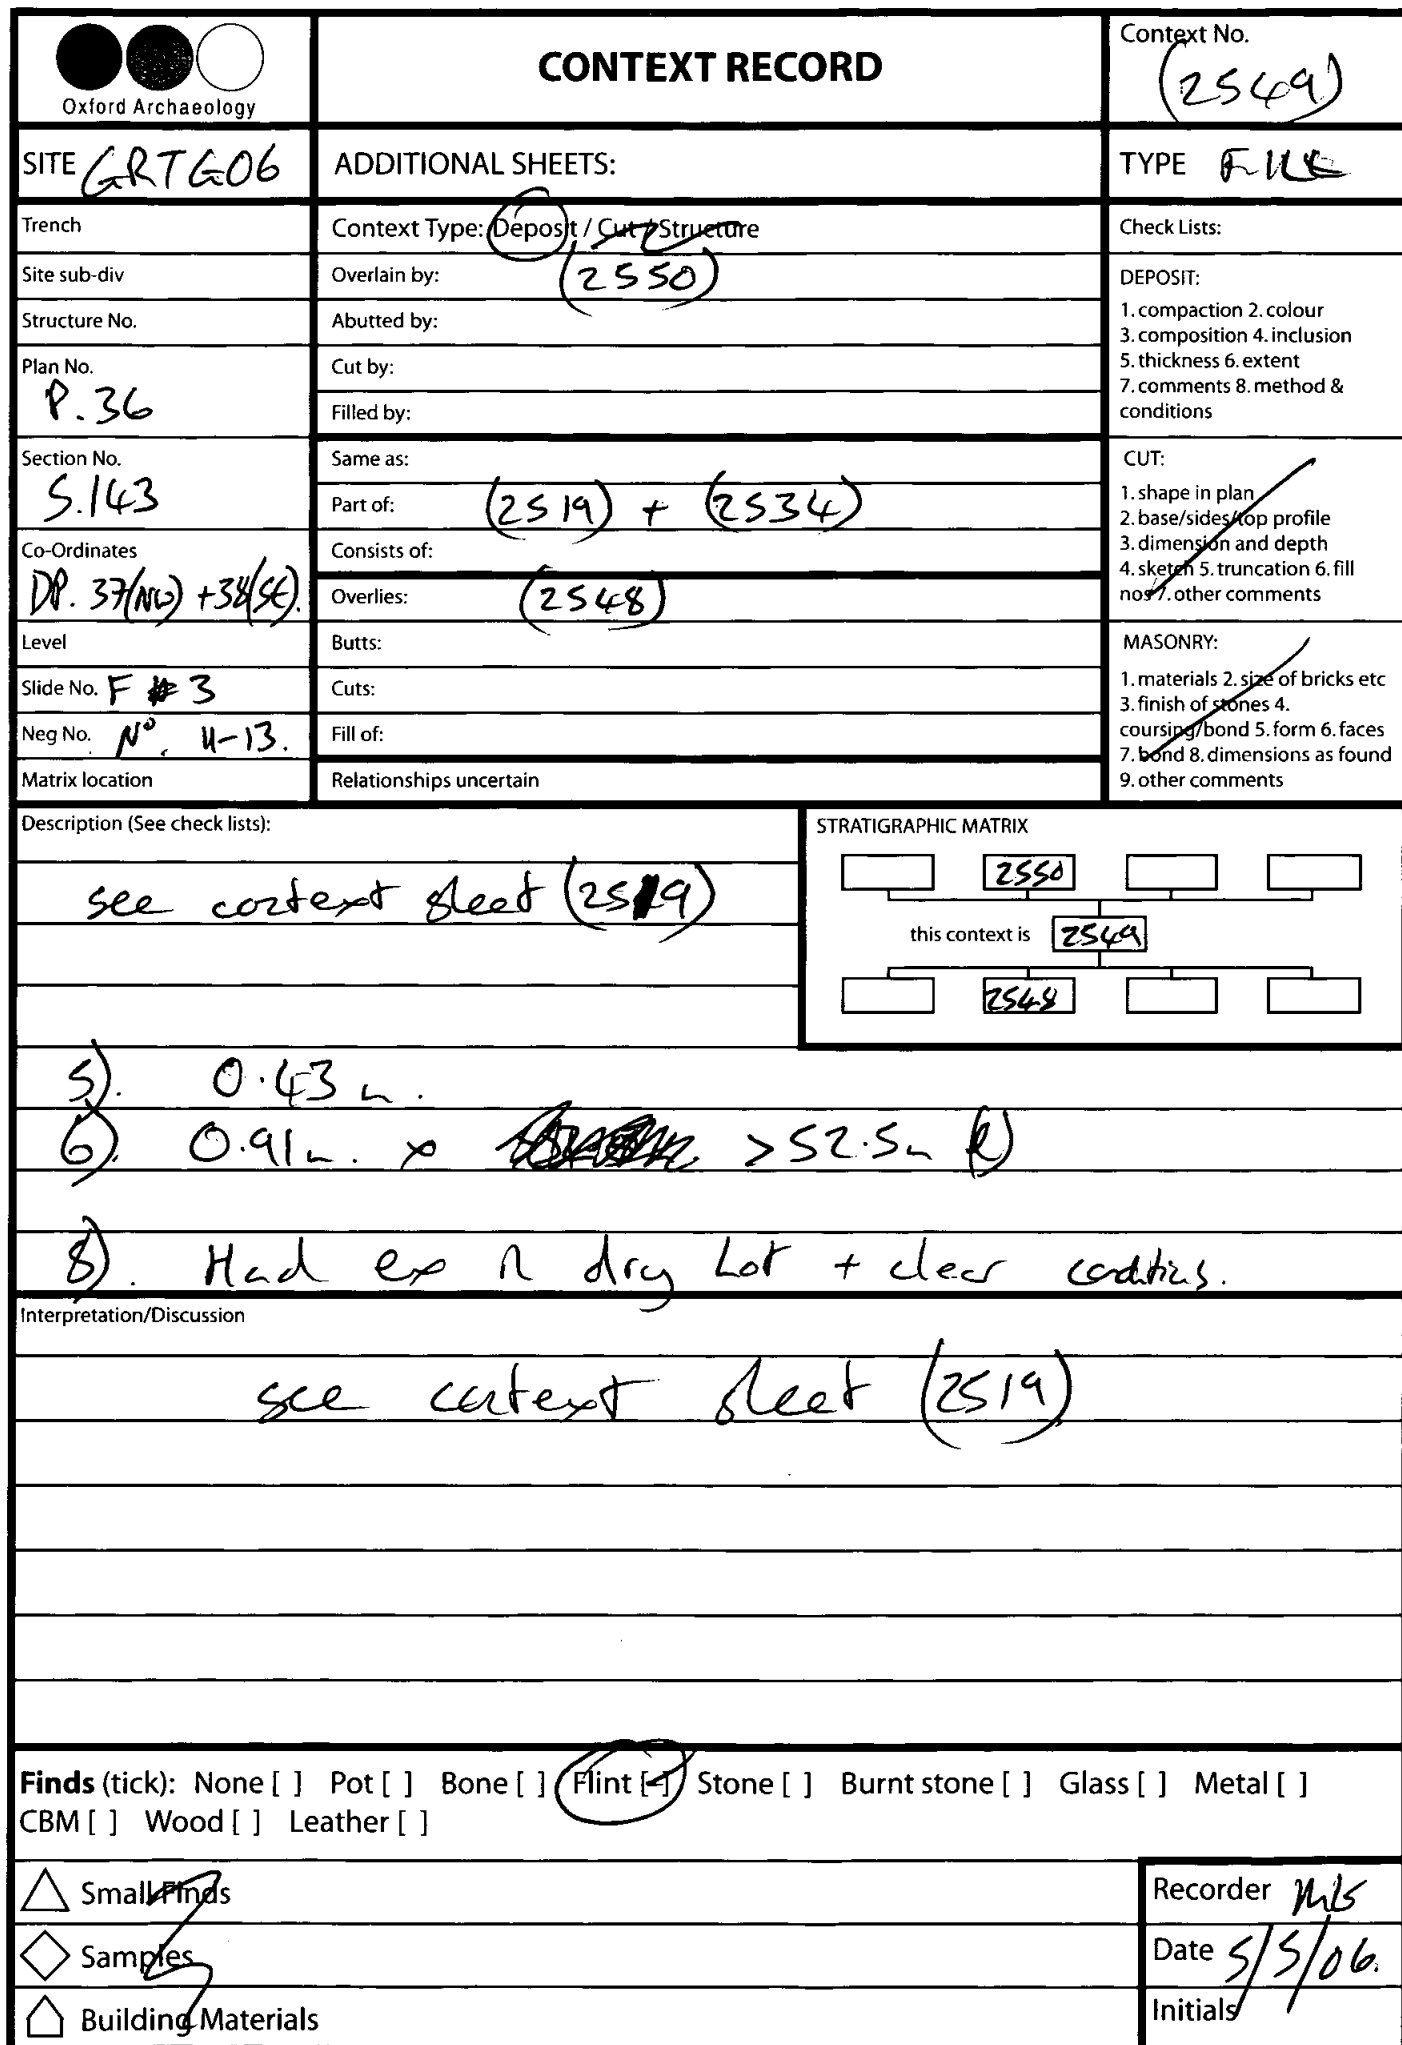 Oxford Archaeology
CONTEXT RECORD
Context No.
(2549)
SITE GRTG06
ADDITIONAL SHEETS:
TYPE FILL
Trench
Site sub-div
Structure No.
Plan No.
P. 36
Section No.
S.143
Co-Ordinates
DP. 37(NW) +38(SE).
Level
Slide No. F # 3
Neg No. No. 11-13.
Matrix location
Context Type: Deposit / Cut / Structure
Overlain by: (2550)
Abutted by:
Cut by:
Filled by:
Same as:
Part of: (2519) + (2534)
Consists of:
Overlies: (2548)
Butts:
Cuts:
Fill of:
Relationships uncertain
Check Lists:
DEPOSIT:
1. compaction 2. colour
3. composition 4. inclusion
5. thickness 6. extent
7. comments 8. method &
conditions
CUT:
1. shape in plan
2. base/sides/top profile
3. dimension and depth
4. sketch 5. truncation 6. fill
nos 7. other comments
MASONRY:
1. materials 2. size of bricks etc
3. finish of stones 4.
coursing/bond 5. form 6. faces
7. bond 8. dimensions as found
9. other comments
Description (See check lists):
see context sheet (2519)
STRATIGRAPHIC MATRIX
2550
this context is 2549
2548
5). 0.43m.
6). 0.91m. x >52.5m
8). Hand ex in dry hot + clear conditions.
Interpretation/Discussion
see context sheet (2519)
Finds (tick): None [ ] Pot [ ] Bone [ ] Flint [-] Stone [ ] Burnt stone [ ] Glass [ ] Metal [ ]
CBM [ ] Wood [ ] Leather [ ]
Small Finds
Samples
Building Materials
Recorder
Date 5/5/06.
Initials